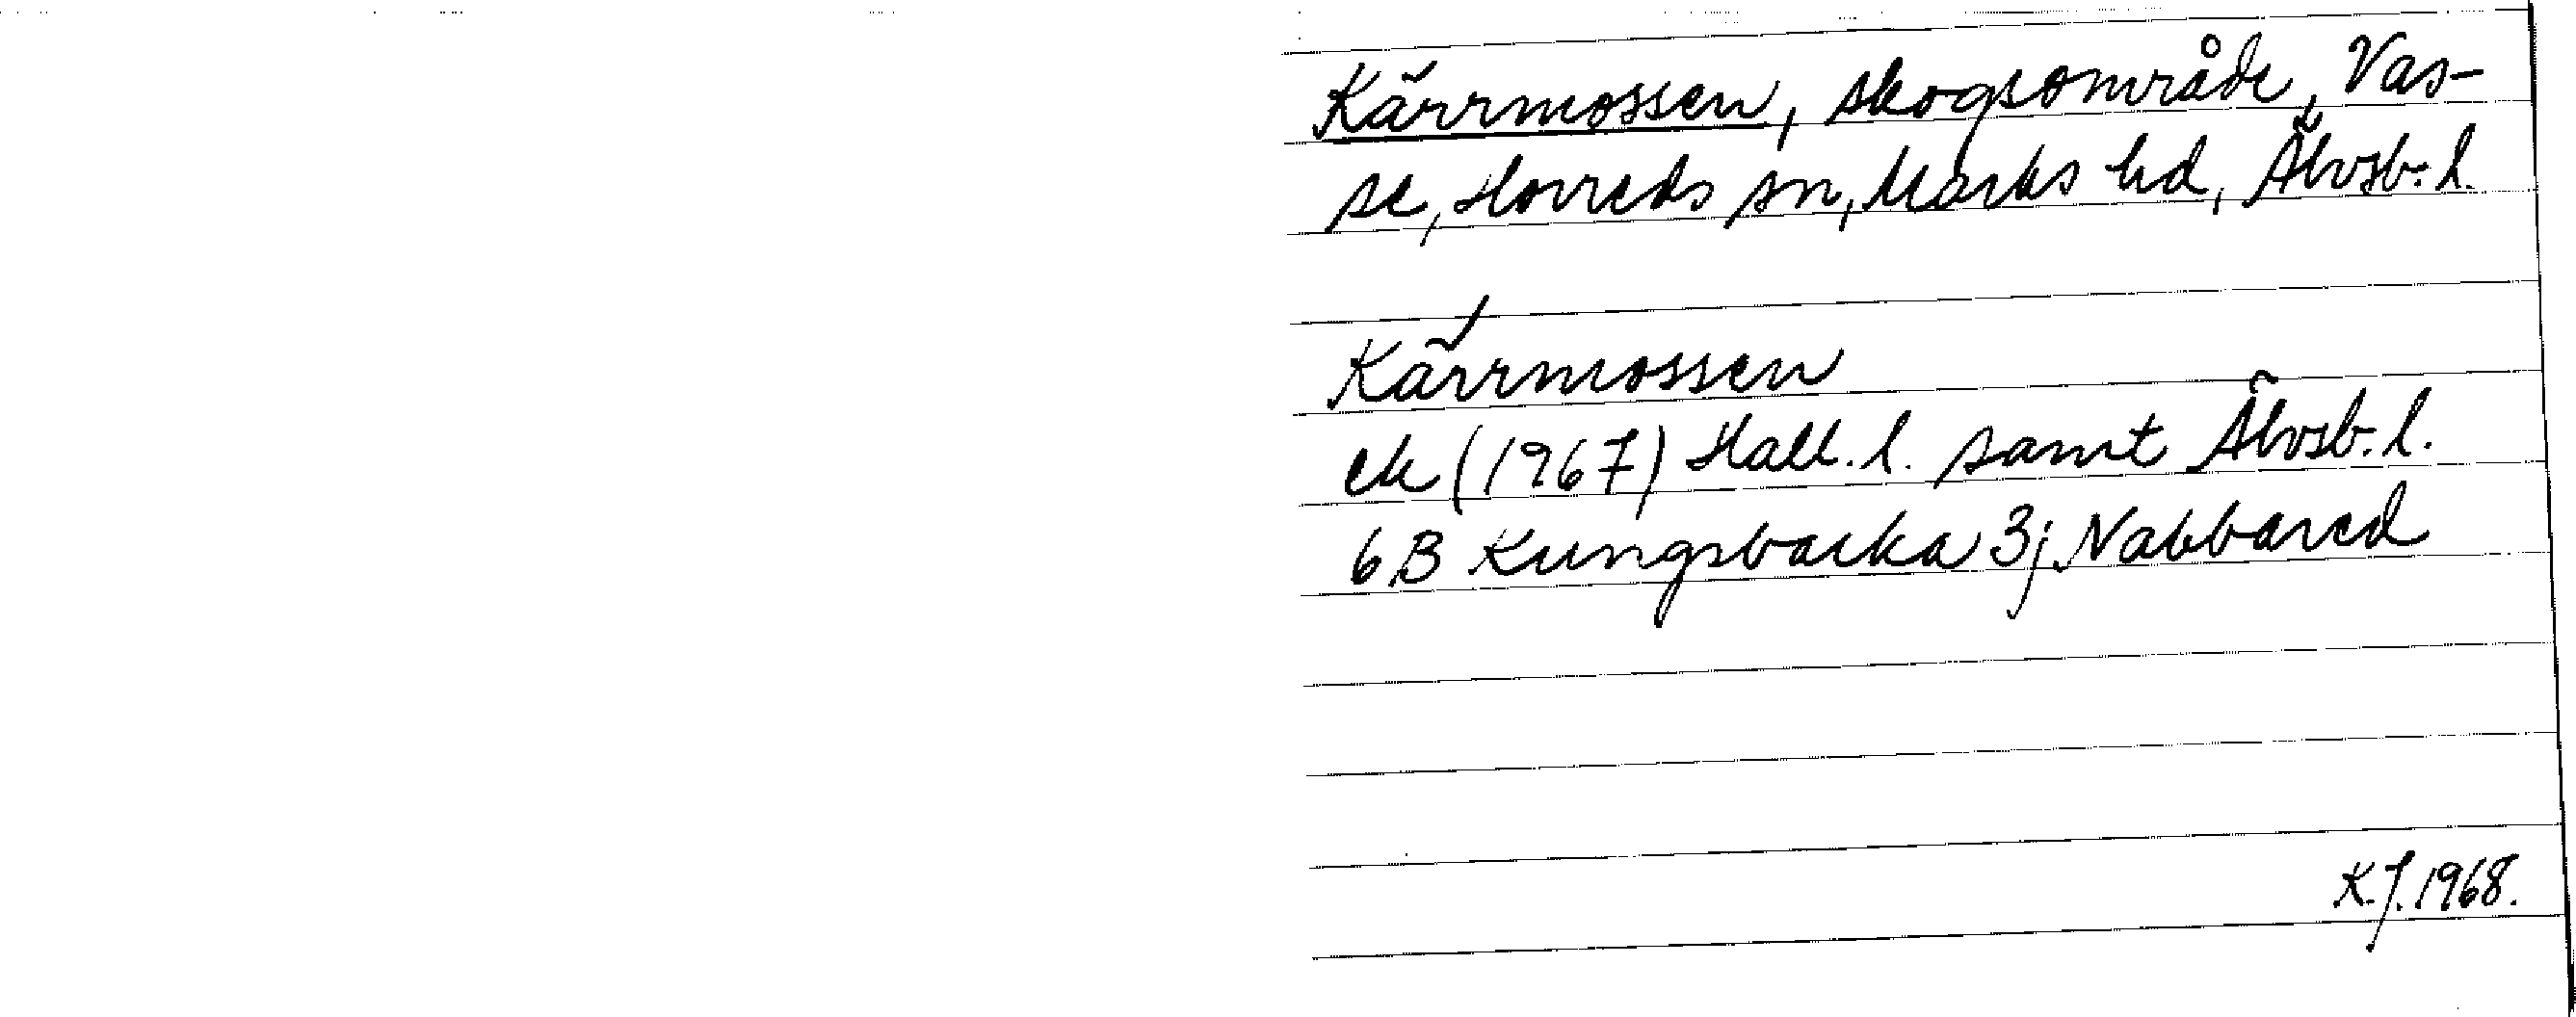 Kärrmossen, skogsområde, Vas-
se, Horreds sn, Marks hd, Älvsb. l.
Kärrmossen
ek (1967) Hall. l. samt Älvsb. l.
6B Kungsbacka 3j Nabbared
K.J. 1968.